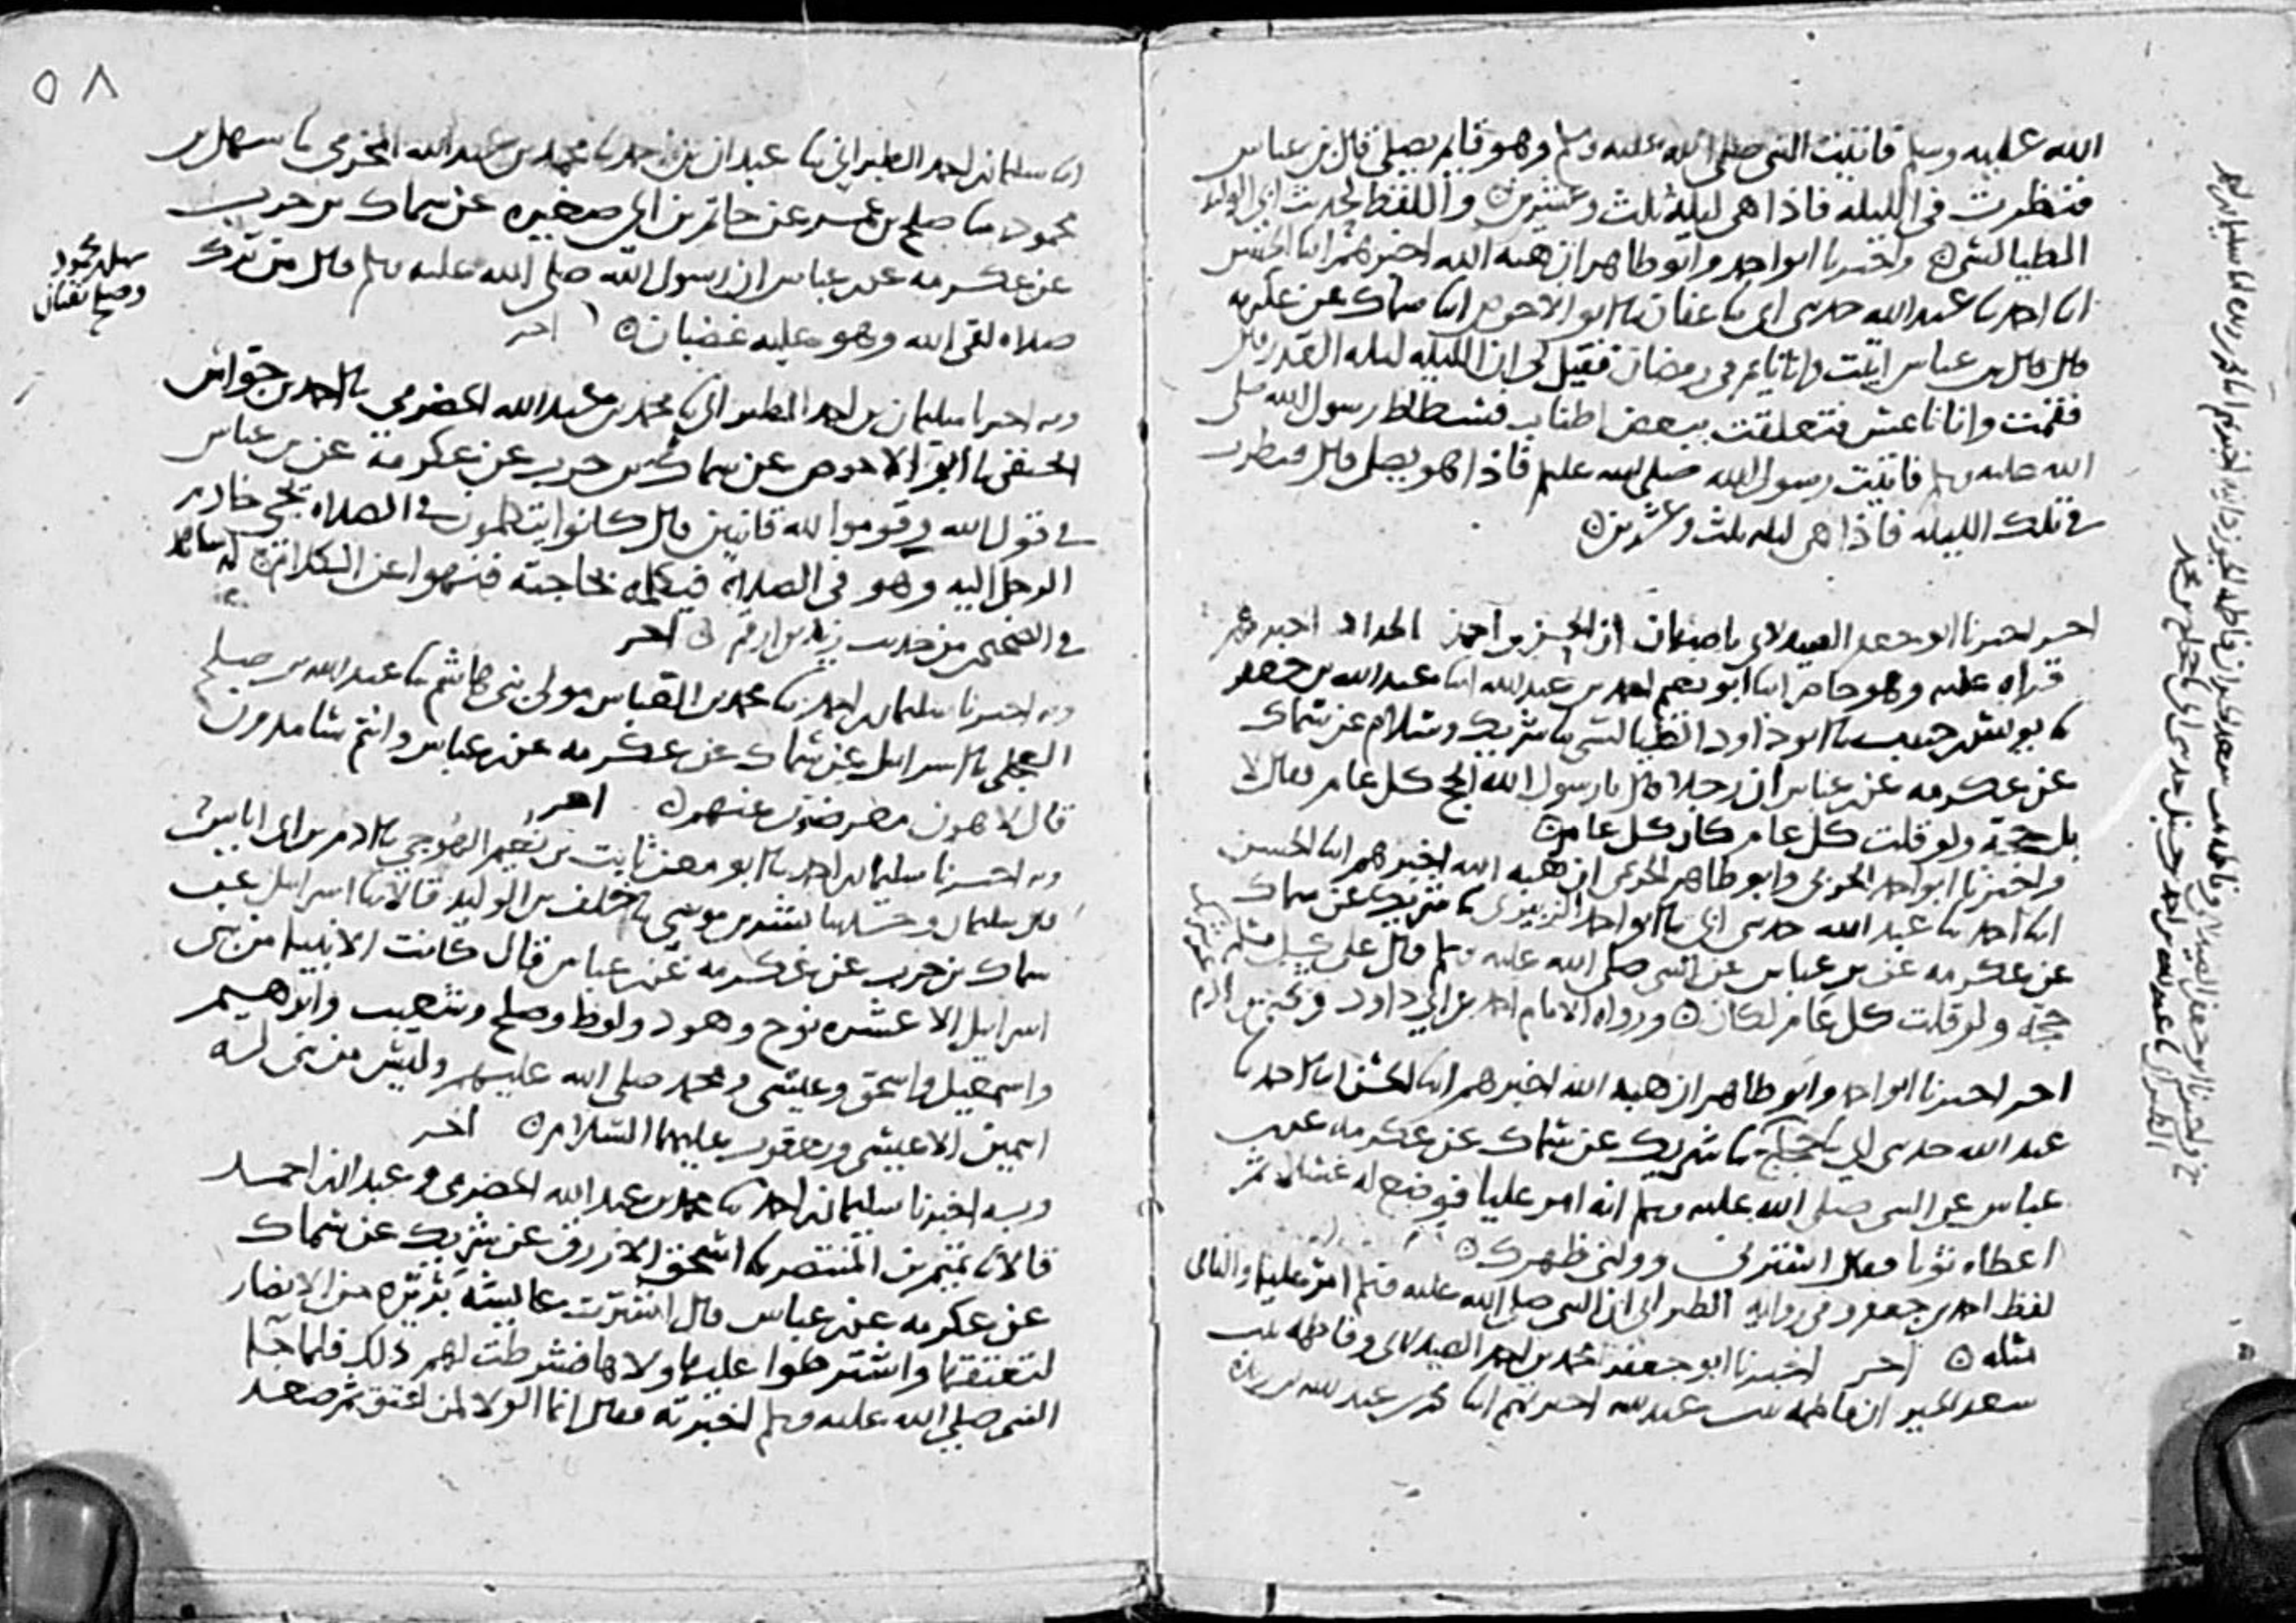 الله عليه وسلم فاتيت النبي صلى الله عليه وسلم وهو قايم يصلي قال بن عباس
فنظرت في الليله فاذا هي ليلة ثلث وعشرين واللفظ لحديث ابي الوليد
الطيالسي واخبرنا ابو احمد وابو طاهر ان هبه الله اخبرهم ابنا الحسن
ابنا احمد نا عبد الله حدثني ابي نا عفان نا ابو الاحوص ابنا سماك عن عكرمه
قال قال بن عباس اتيت وانا نايم في رمضان فقيل لي ان الليله ليله القدر قال
فقمت وانا ناعس فتعلقت ببعض اطناب فسطاط رسول الله صلى
الله عليه وسلم فاتيت رسول الله صلى الله عليه وسلم فاذا هو يصلي قال فنظرت
في تلك الليله فاذا هي ليله ثلث وعشرين
اخر اخبرنا ابو جعفر الصيدلاني باصبهان ان الحسن بن احمد الحداد اخبرهم
قراه عليه وهو حاضر ابنا ابو نعيم احمد بن عبد الله ابنا عبد الله بن جعفر
نا يونس بن حبيب نا ابو داود الطيالسي نا شريك وسلام عن سماك
عن عكرمه عن بن عباس ان رجلا قال يا رسول الله الحج كل عام فقال لا
بل حجة ولو قلت كل عام كان كل عام
واخبرنا ابو احمد الحربي وابو طاهر الحربمي ان هبه الله اخبرهم ابنا الحسن
ابنا احمد نا عبد الله حدثني ابي نا ابو احمد الزبيري نا شريك عن سماك
عن عكرمه عن بن عباس عن النبي صلى الله عليه وسلم قال على كل مسلم
حجة ولو قلت كل عام لكان ورواه الامام احمد عن ابي داود وعن يحيى بن ادم
اخر اخبرنا ابو احمد وابو طاهر ان هبه الله اخبرهم ابنا الحسن ابنا احمد نا
عبد الله حدثني ابي نا حجاج نا شريك عن سماك عن عكرمه عن بن
عباس عن النبي صلى الله عليه وسلم انه امر عليا فوضع له غسلا ثم
اعطاه ثوبا فقال استرني وولني ظهرك
لفظ احمد بن جعفر وفي روايه الطبراني ان النبي صلى الله عليه وسلم امر عليا والباقي
مثله اخر اخبرنا ابو جعفر محمد بن احمد الصيدلاني وفاطمه بنت
سعد الخير ان فاطمه بنت عبد الله اخبرتهم ابنا محمد بن عبد الله بن ريذه
٥٨
ابنا سليمان بن احمد الطبراني نا عبدان بن احمد نا محمد بن عبد الله المخرمي نا سهل بن
محمود نا صلح بن عمر عن حاتم بن ابي صغيره عن سماك بن حرب
عن عكرمه عن بن عباس ان رسول الله صلى الله عليه وسلم قال من ترك
صلاه لقي الله وهو عليه غضبان اخر
سهل بن محمود
وصلح ثقتان
وبه اخبرنا سليمان بن احمد الطبراني نا محمد بن عبد الله الحضرمي نا احمد بن جواس
الحنفي نا ابو الاحوص عن سماك بن حرب عن عكرمة عن بن عباس
في قول الله وقوموا لله قانتين قال كانوا يتكلمون في الصلاه يجي خادم
الرجل اليه وهو في الصلاه فيكلمه بحاجته فنهوا عن الكلام له شاهد
في الصحيحين من حديث زيد بن ارقم اخر
وبه اخبرنا سليمان بن احمد نا محمد بن العباس مولى بني هاشم نا عبد الله بن صلح
العجلي نا اسرايل عن سماك عن عكرمه عن بن عباس وانتم سامدون
قال لاهون معرضون عنهو اخر
وبه اخبرنا سليمان بن احمد نا ابو معن ثابت بن نعيم الهوجي نا ادم بن ابي اياس
قال سليمان وحدثنا بشر بن موسى نا خلف بن الوليد قالا نا اسرايل عن
سماك بن حرب عن عكرمه عن بن عباس قال كانت الانبيا من بني
اسرايل الا عشره نوح وهود ولوط وصلح وشعيب وابرهيم
واسمعيل واسحق وعيسى ومحمد صلى الله عليهم وليس من نبي له
اسمين الا عيسى ويعقوب عليهما السلام اخر
وبه اخبرنا سليمان بن احمد نا محمد بن عبد الله الحضرمي وعبدان بن احمد
قالا نا تميم بن المنتصر نا اسحق الازرق عن شريك عن سماك
عن عكرمه عن بن عباس قال اشترت عايشة بريره من الانصار
لتعتقها واشترطوا عليها ولاها فشرطت لهم ذلك فلما جا
النبي صلى الله عليه وسلم اخبرته فقال انما الولا لمن اعتق ثم صعد